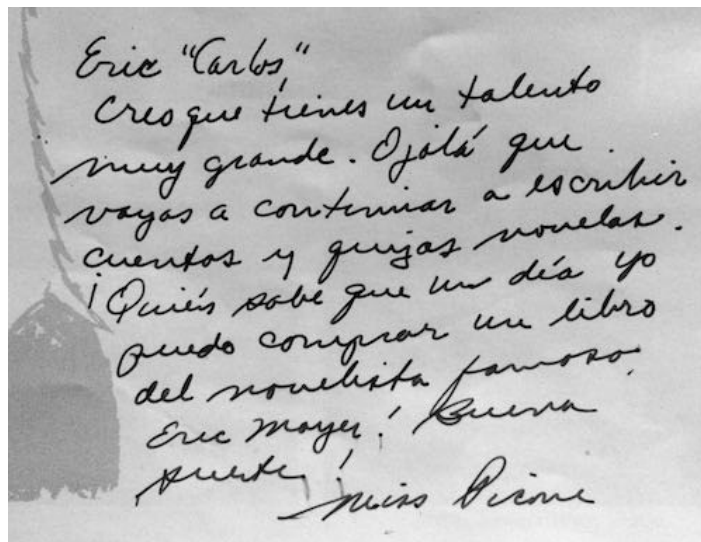 Eric "Carlos"
Creo que tienes un talento
muy grande. Ojalá que
vayas a continuar a escribir
cuentos y quizas novelas.
¡Quién sabe que un día yo
puedo comprar un libro
del novelista famoso
Eric Mayer! Buena
suerte!
Miss Picone